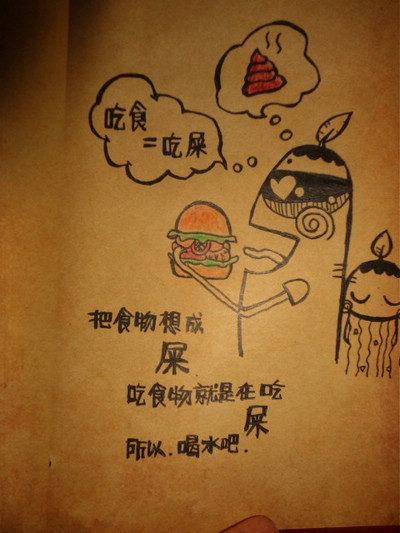 吃食
=吃屎
把食物想成
屎
吃食物就是在吃
屎
所以.喝水吧.